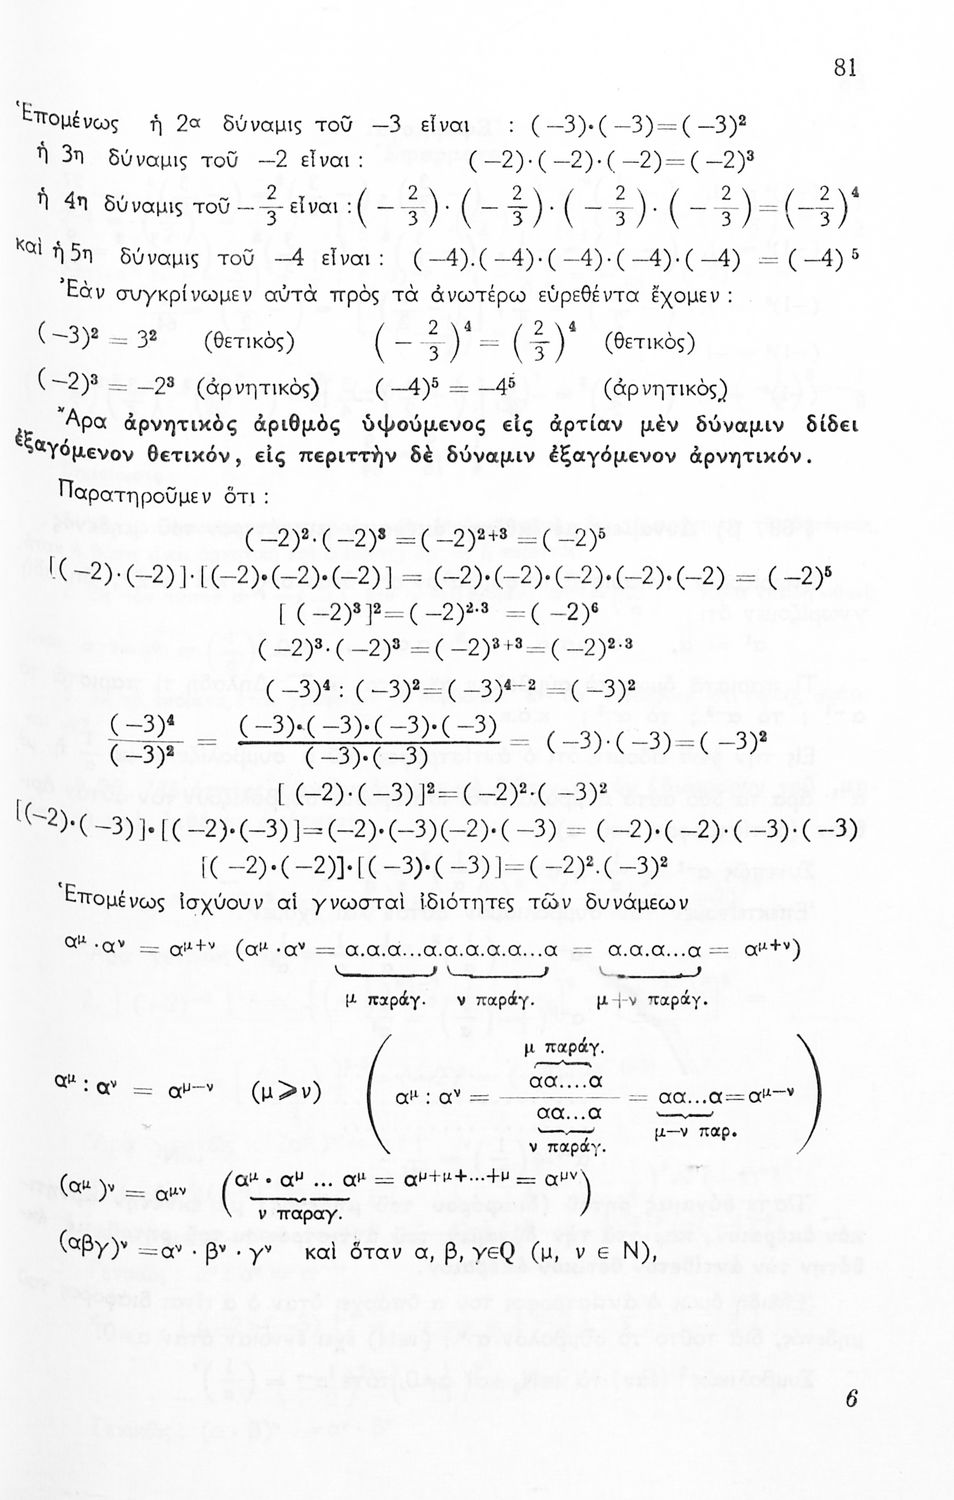 81
Ἑπομένως ἡ 2α δύναμις τοῦ —3 εἶναι : (—3)·(—3)=(—3)²
ἡ 3η δύναμις τοῦ —2 εἶναι : (—2)·(—2)·(—2)=(—2)³
ἡ 4η δύναμις τοῦ — 2/3 εἶναι : (— 2/3)·(— 2/3)·(— 2/3)·(— 2/3)=(— 2/3)⁴
καὶ ἡ 5η δύναμις τοῦ —4 εἶναι : (—4).(—4)·(—4)·(—4)·(—4) = (—4)⁵
Ἐὰν συγκρίνωμεν αὐτὰ πρὸς τὰ ἀνωτέρω εὑρεθέντα ἔχομεν :
(—3)² = 3² (θετικὸς) (— 2/3)⁴ = (2/3)⁴ (θετικὸς)
(—2)³ = —2³ (ἀρνητικὸς) (—4)⁵ = —4⁵ (ἀρνητικὸς)
Ἄρα ἀρνητικὸς ἀριθμὸς ὑψούμενος εἰς ἀρτίαν μὲν δύναμιν δίδει
ἐξαγόμενον θετικόν, εἰς περιττὴν δὲ δύναμιν ἐξαγόμενον ἀρνητικόν.
Παρατηροῦμεν ὅτι :
(—2)²·(—2)³ =(—2)²⁺³ =(—2)⁵
[(—2)·(—2)]·[(—2)·(—2)·(—2)] = (—2)·(—2)·(—2)·(—2)·(—2) = (—2)⁵
[(—2)³]²=(—2)²·³ =(—2)⁶
(—2)³·(—2)³ =(—2)³⁺³=(—2)²·³
(—3)⁴ : (—3)²=(—3)⁴⁻² = (—3)²
(—3)⁴/(—3)² = (—3)·(—3)·(—3)·(—3)/(—3)·(—3) = (—3)·(—3)=( 3)²
[(—2)·(—3)]²=(—2)²·(—3)²
[(—2)·(—3)]·[(—2)·(—3)]=(—2)·(—3)(—2)·(—3) = (—2)·(—2)·(—3)·(—3)
[(—2)·(—2)]·[(—3)·(—3)]=(—2)².(—3)²
Ἑπομένως ἰσχύουν αἱ γνωσταὶ ἰδιότητες τῶν δυνάμεων
α^μ ·α^ν = α^(μ+ν) (α^μ ·α^ν = α.α.α...α.α.α.α.α...α = α.α.α...α = α^(μ+ν))
μ παράγ. ν παράγ. μ+ν παράγ.
μ παράγ.
α^μ : α^ν = α^(μ—ν) (μ⩾ν) (α^μ : α^ν = αα....α/αα...α = αα...α=α^(μ—ν))
ν παράγ. μ—ν παρ.
(α^μ)^ν = α^(μν) (α^μ · α^μ ... α^μ = α^(μ+μ+...+μ) = α^(μν))
ν παραγ.
(αβγ)^ν =α^ν · β^ν · γ^ν καὶ ὅταν α, β, γεQ (μ, ν ε N),
6